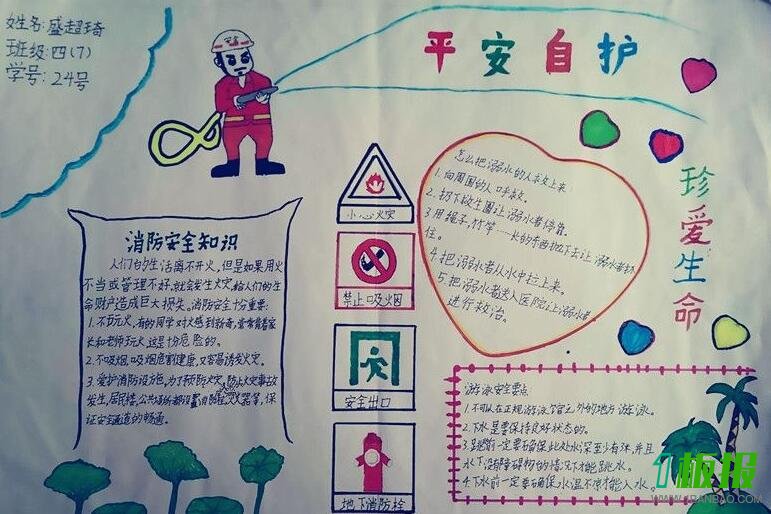 姓名:盛超琦
班级:四(7)
学号:24号
平安自护
珍爱生命
消防安全知识
人们的生活离不开火,但是如果用火
不当或管理不好,就会发生火灾,给人们的生
命财产造成巨大损失。消防安全十分重要:
1.不玩火,有的同学对火感到新奇,常常背着家
长和老师玩火,这是十分危险的。
2.不吸烟,吸烟危害健康,又容易诱发火灾。
3.爱护消防设施,为了预防火灾,防止火灾事故
发生,居民楼、公共场所都设置消防栓、灭火器等,保
证安全通道的畅通。
小心火灾
禁止吸烟
安全出口
地下消防栓
怎么把溺水的人救上来
1.向周围的人呼救。
2.扔下救生圈让溺水者停靠。
3.用绳子,竹竿……长的东西抛下去让溺水者抓
住。
4.把溺水者从水中拉上来。
5.把溺水者送入医院让溺水者
进行救治。
游泳安全要点
1.不可以在正规游泳馆之外的地方游泳。
2.下水是要保持良好状态的。
3.跳前一定要确保此处水深至少有米,并且
水下没障碍物的情况下才能跳水。
4.下水前一定要确保水温不凉才能入水。
板报
WWW.1BANBAO.COM